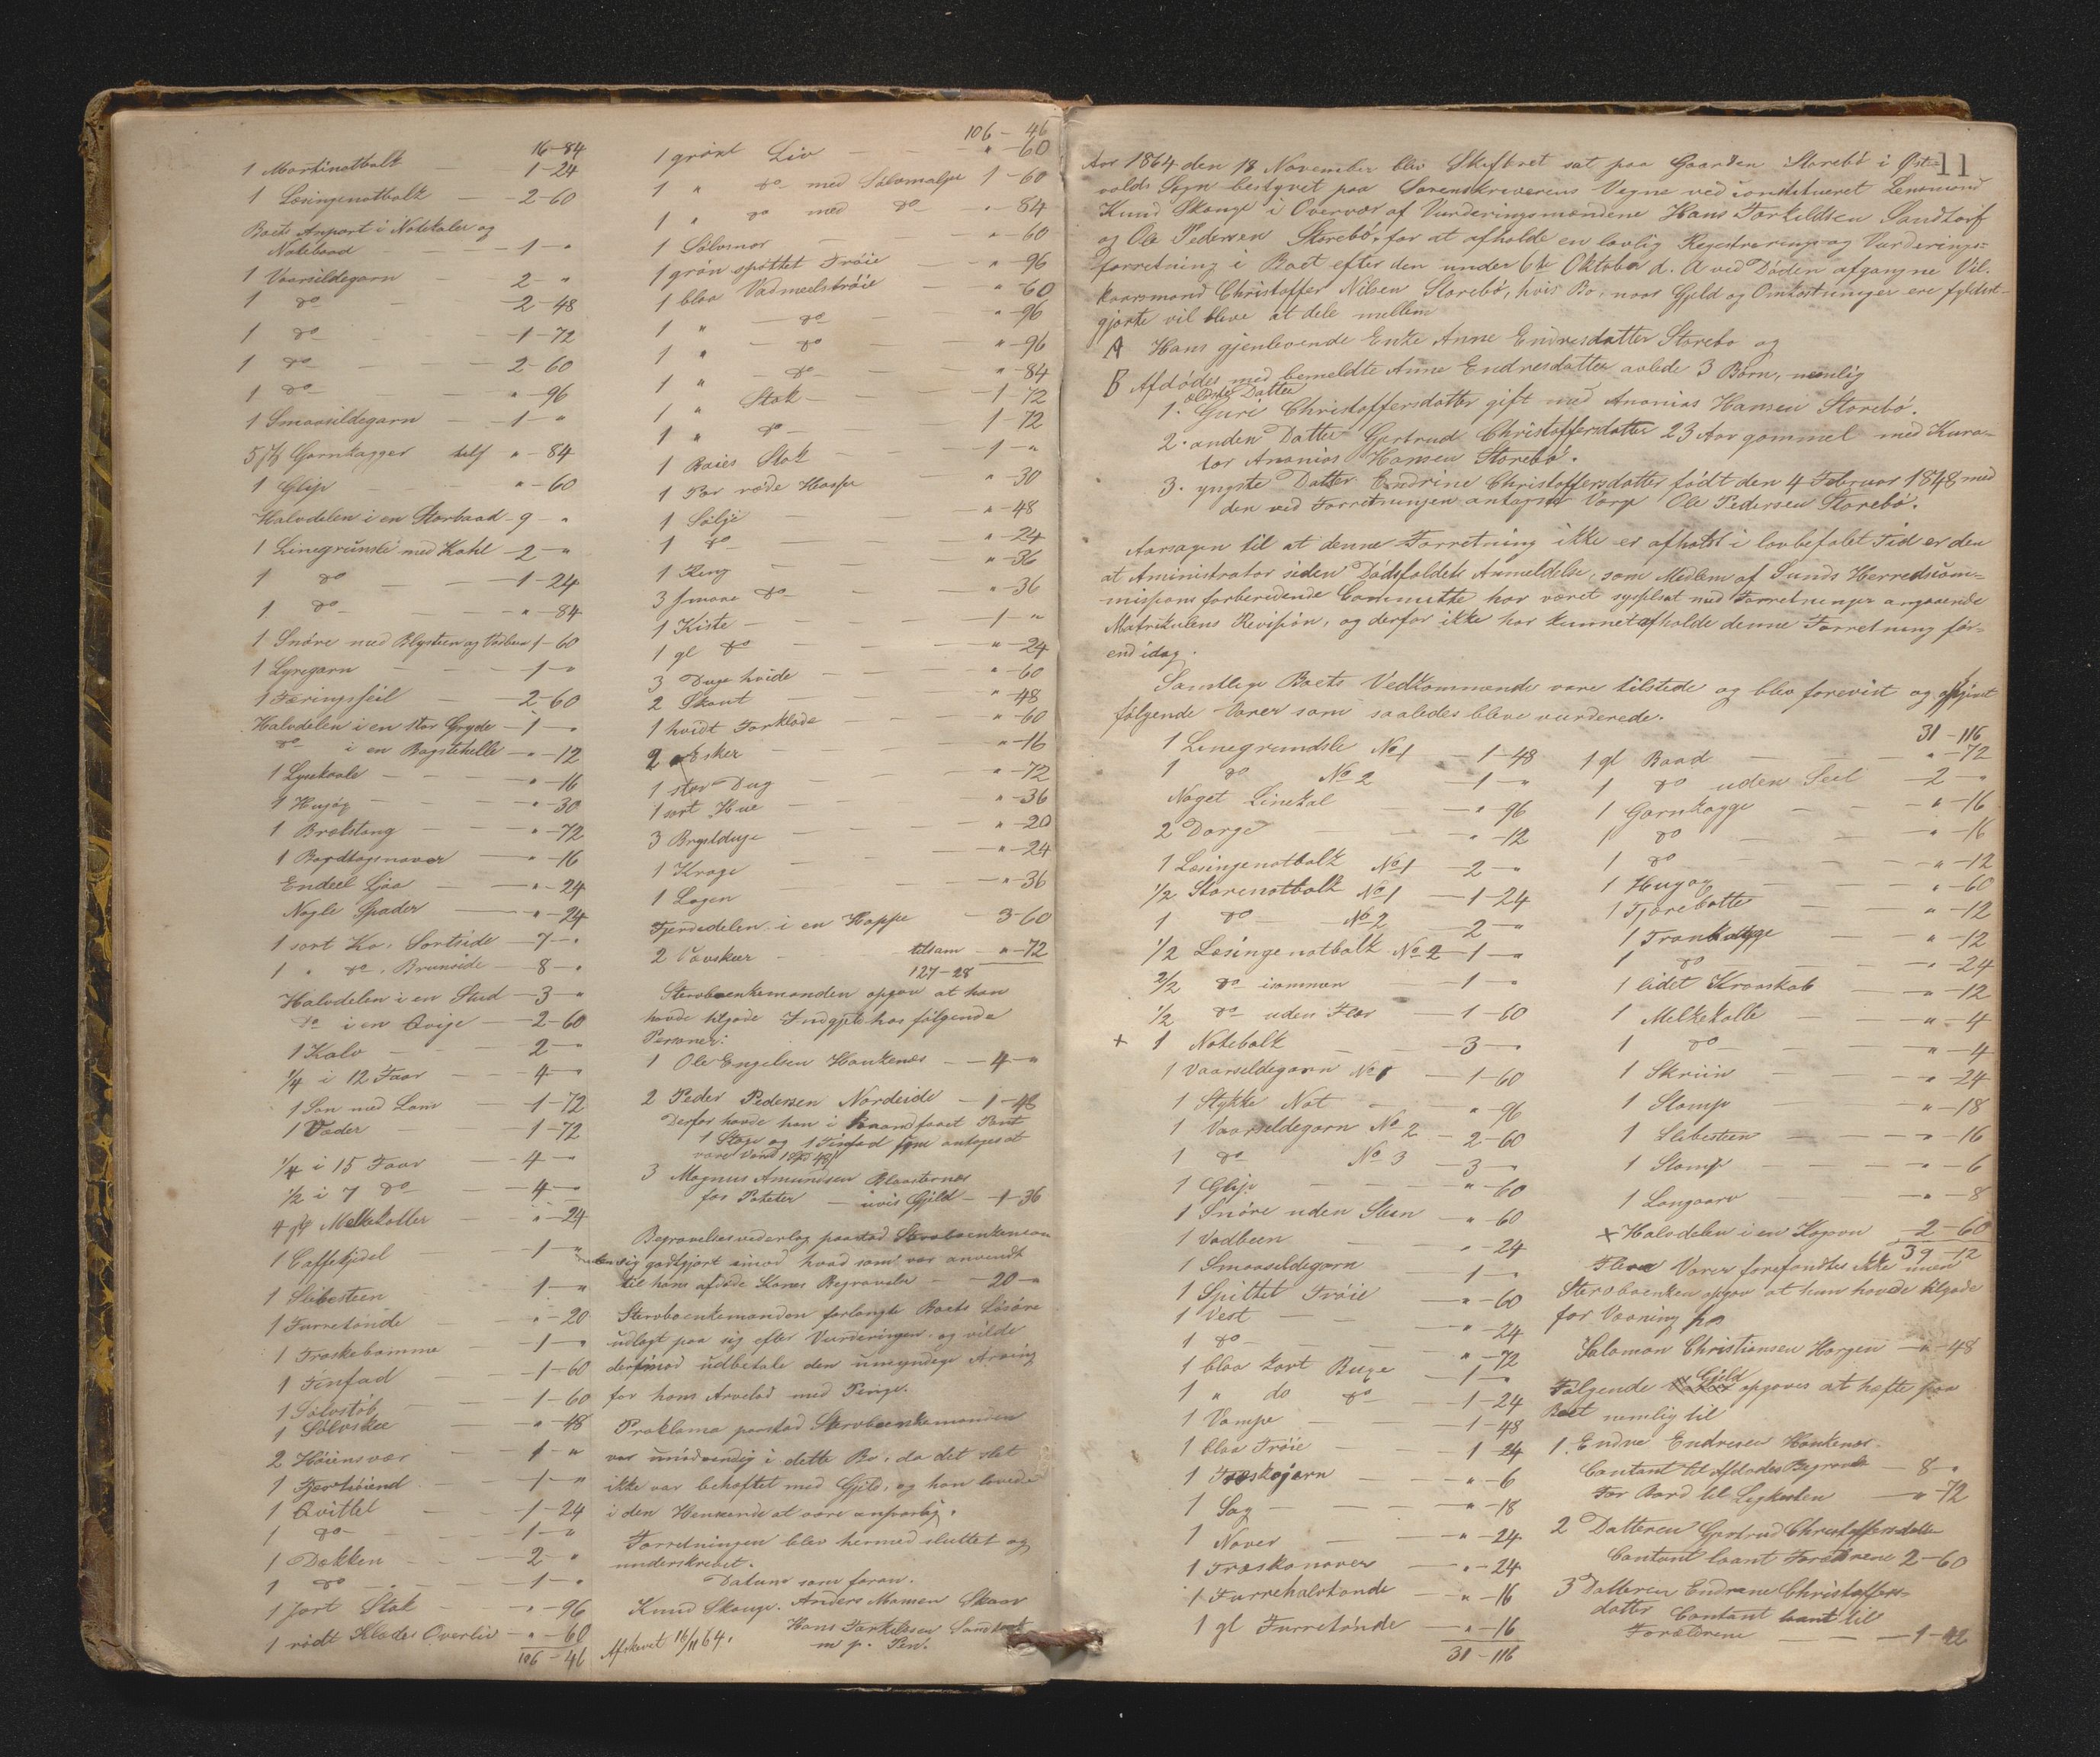 16-84
1 Mortinotbolk 1-24
1 Læsingenotbolk — 2-60
Boets Anpart i Notekaler og
Notebaad — 1-"
1 Vaarsildegarn — 2-"
1 do - 2-48
1 do - 1-72
1 do - 2-60
1 do - "-96
1 Smaasildegarn — 1-"
5 stk Garnkagger self "-84
1 Glip - "-60
Halvdelen i en Storbaad - 9-"
1 Linegrunsle med Kahl - 2-"
1 do - 1-24
1 do - "-84
1 Snøre med Blysteen og Vadbeen 1-60
1 Lyregarn — 1-"
1 Færingsseil — 2-60
Halvdelen i en stor Gryde - 1-"
do i en Bagstehelle - "-12
1 Lysekoole - "-16
1 Hugøg - "-30
1 Brækstang - "-72
1 Bordtagsnaver - "-16
Endeel Ljaa - "-24
Nogle Spader - "-24
1 sort Ko, Sortside - 7-"
1 " do, Brunside - 8-"
Halvdelen i en Stud - 3-"
do i en Qvige - 2-60
1 Kalv - 2-"
1/4 i 12 Faar - 4-"
1 Søn med Lam - 1-72
1 Væder - 1-72
1/4 i 15 Faar - 4-"
1/2 i 7 do - 4-"
4 stk Melkekoller - "-24
1 Caffekjedel - 1-"
1 Slibesteen - 1-"
1 Furretønde - "-20
1 Træskebomme - 1-"
1 Tinfad - 1-60
1 Sølvstøb - 1-60
1 Sølvskee - "-48
2 Høiensvær - 1-"
1 Fjærhøiend - 1-"
1 Qvittel - 1-24
1 do - 1-"
1 Dækken - 2-"
1 do - 1-"
1 sort Stak - "-96
1 rødt Klædes Overliv - "-60
106-46
106-46
1 grønt Liv - "-60
1 " do med Sølvmalje 1-60
1 " do med do "-84
1 Sølvsnor "-60
1 grøn spøttet Trøie "-96
1 blaa Vadmeelstrøie "-60
1 " do "-96
1 " do "-96
1 " do "-84
1 " Stak 1-72
1 " do 1-72
1 Baies Stak 1-"
1 Par røde Hoser "-30
1 Sølje "-48
1 do "-24
1 Ring "-36
3 smaae do "-36
1 Kiste 1-"
1 gl do "-24
3 Duge hvide "-60
2 Skaut "-48
1 hvidt Forklæde "-60
2 Æsker "-16
1 stor Dug "-72
1 sort Hue "-36
3 Brystduge "-20
1 Krage "-24
1 Lagen "-36
Fjerdedelen i en Hoppe 3-60
2 Tovskeer tilsam "-72
127-28
Stervboenkemanden opgav at han
havde tilgode Indgjeld hos følgende
Personer:
1 Ole Engelsen Haukenæs - 4-"
2 Peder Pedersen Nordeide - 1-48
Derfor havde han i Haand faaet Pant
1 Støp og 1 Tinfad som antoges at
være værd 1 Spd 48 s
3 Magnus Amundsen Blaasternæs
for Poteter - uvis Gjeld - 1-36
Begravelsesvederlag paastod Stervboenkemanden
sig godtgjort imod hvad som var anvendt
til hans afdøde Kones Begravelse - 20-"
Stervboenkemanden forlangte Boets Løsøre
udlagt paa sig efter Vurderingen, og vilde
derimod udbetale den umyndige Arving
for hans Arvelod med Penge.
Proklama paastod Stervboenkemanden
var unødvendig i dette Bo, da det slet
ikke var beheftet med Gjeld, og han lovede
i den Henseende at være ansvarlig.
Forretningen blev hermed sluttet og
underskrevet.
Datum som foran.
Knud Skauge. Anders Monsen Skaar
Hans Torkildsen Sandtorf
m. p. Pen.
Afskrevet 16/11 64.
11
Aar 1864 den 18 November blev Skifteret sat paa Gaarden Storebø i Øste-
volds Sogn bestyret paa Sorenskriverens Vegne ved constitueret Lensmand
Knud Skauge i Overvær af Vurderingsmændene Hans Torkildsen Sandtorf
og Ole Pedersen Storebø, for at afholde en lovlig Registrerings og Vurderings-
forretning i Boet efter den under 6te Oktober d. A ved Døden afgangne Vil-
kaarsmand Christoffer Nilsen Storebø, hvis Bo, naar Gjeld og Omkostninger ere fyldest-
gjorte vil blive at dele mellem
A Hans gjenlevende Enke Anne Endresdatter Storebø og
B Afdødes med bemeldte Anne Endresdatter avlede 3 Børn, nemlig
1. ældste Datter Guri Christoffersdatter gift med Ananias Hansen Storebø.
2. anden Datter Gjertrud Christoffersdatter 23 Aar gammel med Kura-
tor Ananias Hansen Storebø.
3. yngste Datter Endrine Christoffersdatter født den 4 Februar 1848 med
den ved Forretningen antagne Værge Ole Pedersen Storebø.
Aarsagen til at denne Forretning ikke er afholdt i lovbefalet Tid er den
at Aministrator siden Dødsfaldets Anmeldelse, som Medlem af Sunds Herredscom-
missions forberedende Committe har været sysselsat med Forretninger angaaende
Matrikulens Revision, og derfor ikke har kunnet afholde denne Forretning før-
end idag.
Samtlige Boets Vedkommende vare tilstede og blev forevist og opgivet
følgende Varer som saaledes bleve vurderede.
1 Linegrundsle No 1 - 1-48
1 do No 2 - 1-"
Noget Linekal "-96
2 Dorge "-12
1 Læsingenotbolk No 1 - 2-"
1/2 Storenotbolk No 1 - 1-24
1 do No 2 2-"
1/2 Læsingenotbolk No 2 - 1-"
2/2 do isammen - 1-"
1/2 do uden Flær - 1-60
+ 1 Notebolk - 3-"
1 Vaarsildegarn No 1 - 1-60
1 Stykke Not "-96
1 Vaarsildegarn No 2 - 2-60
1 do No 3 - 3-"
1 Glip "-60
1 Snøre uden Steen - "-60
1 Vadbeen "-24
1 Smaasildegarn - 1-"
1 Spittet Trøie - "-60
1 Vest "-24
1 do "-72
1 blaa kort Buxe - 1-"
1 " do do - 1-24
1 Vampe 1-48
1 blaa Trøie 1-24
1 Træskojern "-6
1 Sag "-18
1 Naver "-24
1 Træskonaver "-24
1 Furrehalvtønde "-16
1 gl Furretønde "-16
31-116
31-116
1 gl Baad "-72
1 do uden Seil - 2-"
1 Garnkagge "-16
1 do "-16
1 do "-12
1 Hugøg "-60
1 Tjærebøtte "-12
1 Trankagge "-12
1 do "-24
1 lidet Kroskab "-12
1 Melkekolle "-4
1 do "-4
1 Skriin "-24
1 Stamp "-18
1 Slibesteen "-16
1 Stamp "-6
1 Langaarv "-8
+ Halvdelen i en Kopron 2-60
39-12
Flere Varer forefandtes ikke men
Stervboenken opgav at hun havde tilgode
for Vaaning hos
Salomon Christiansen Horgen - "-48
Følgende Gjeld opgaves at hæfte paa
Boet nemlig til
1. Endre Endresen Haukenæs
Contant til Afdødes Begravelse - 8-"
For Bord til Ligkisten - "-72
2 Datteren Gjertrud Christoffersdatter
Contant laant Forældrene 2-60
3 Datteren Endrine Christoffers-
datter Contant laant til
Forældrene - 1-12